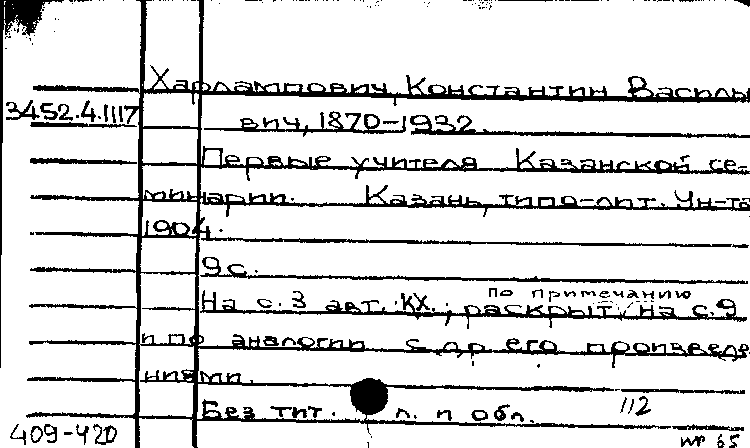 Харлампович, Константин Василь
3452.4.1117
вич, 1870-1932.
Первые учителя Казанской се-
минарии. Казань, типо-лит. Ун-та
1904.
9 с.
по примечанию
На с.3 авт. КХ.; раскрыт на с.9
и по аналогии с др его произведе
ниями.
Без тит. л. и обл. 112
409-420